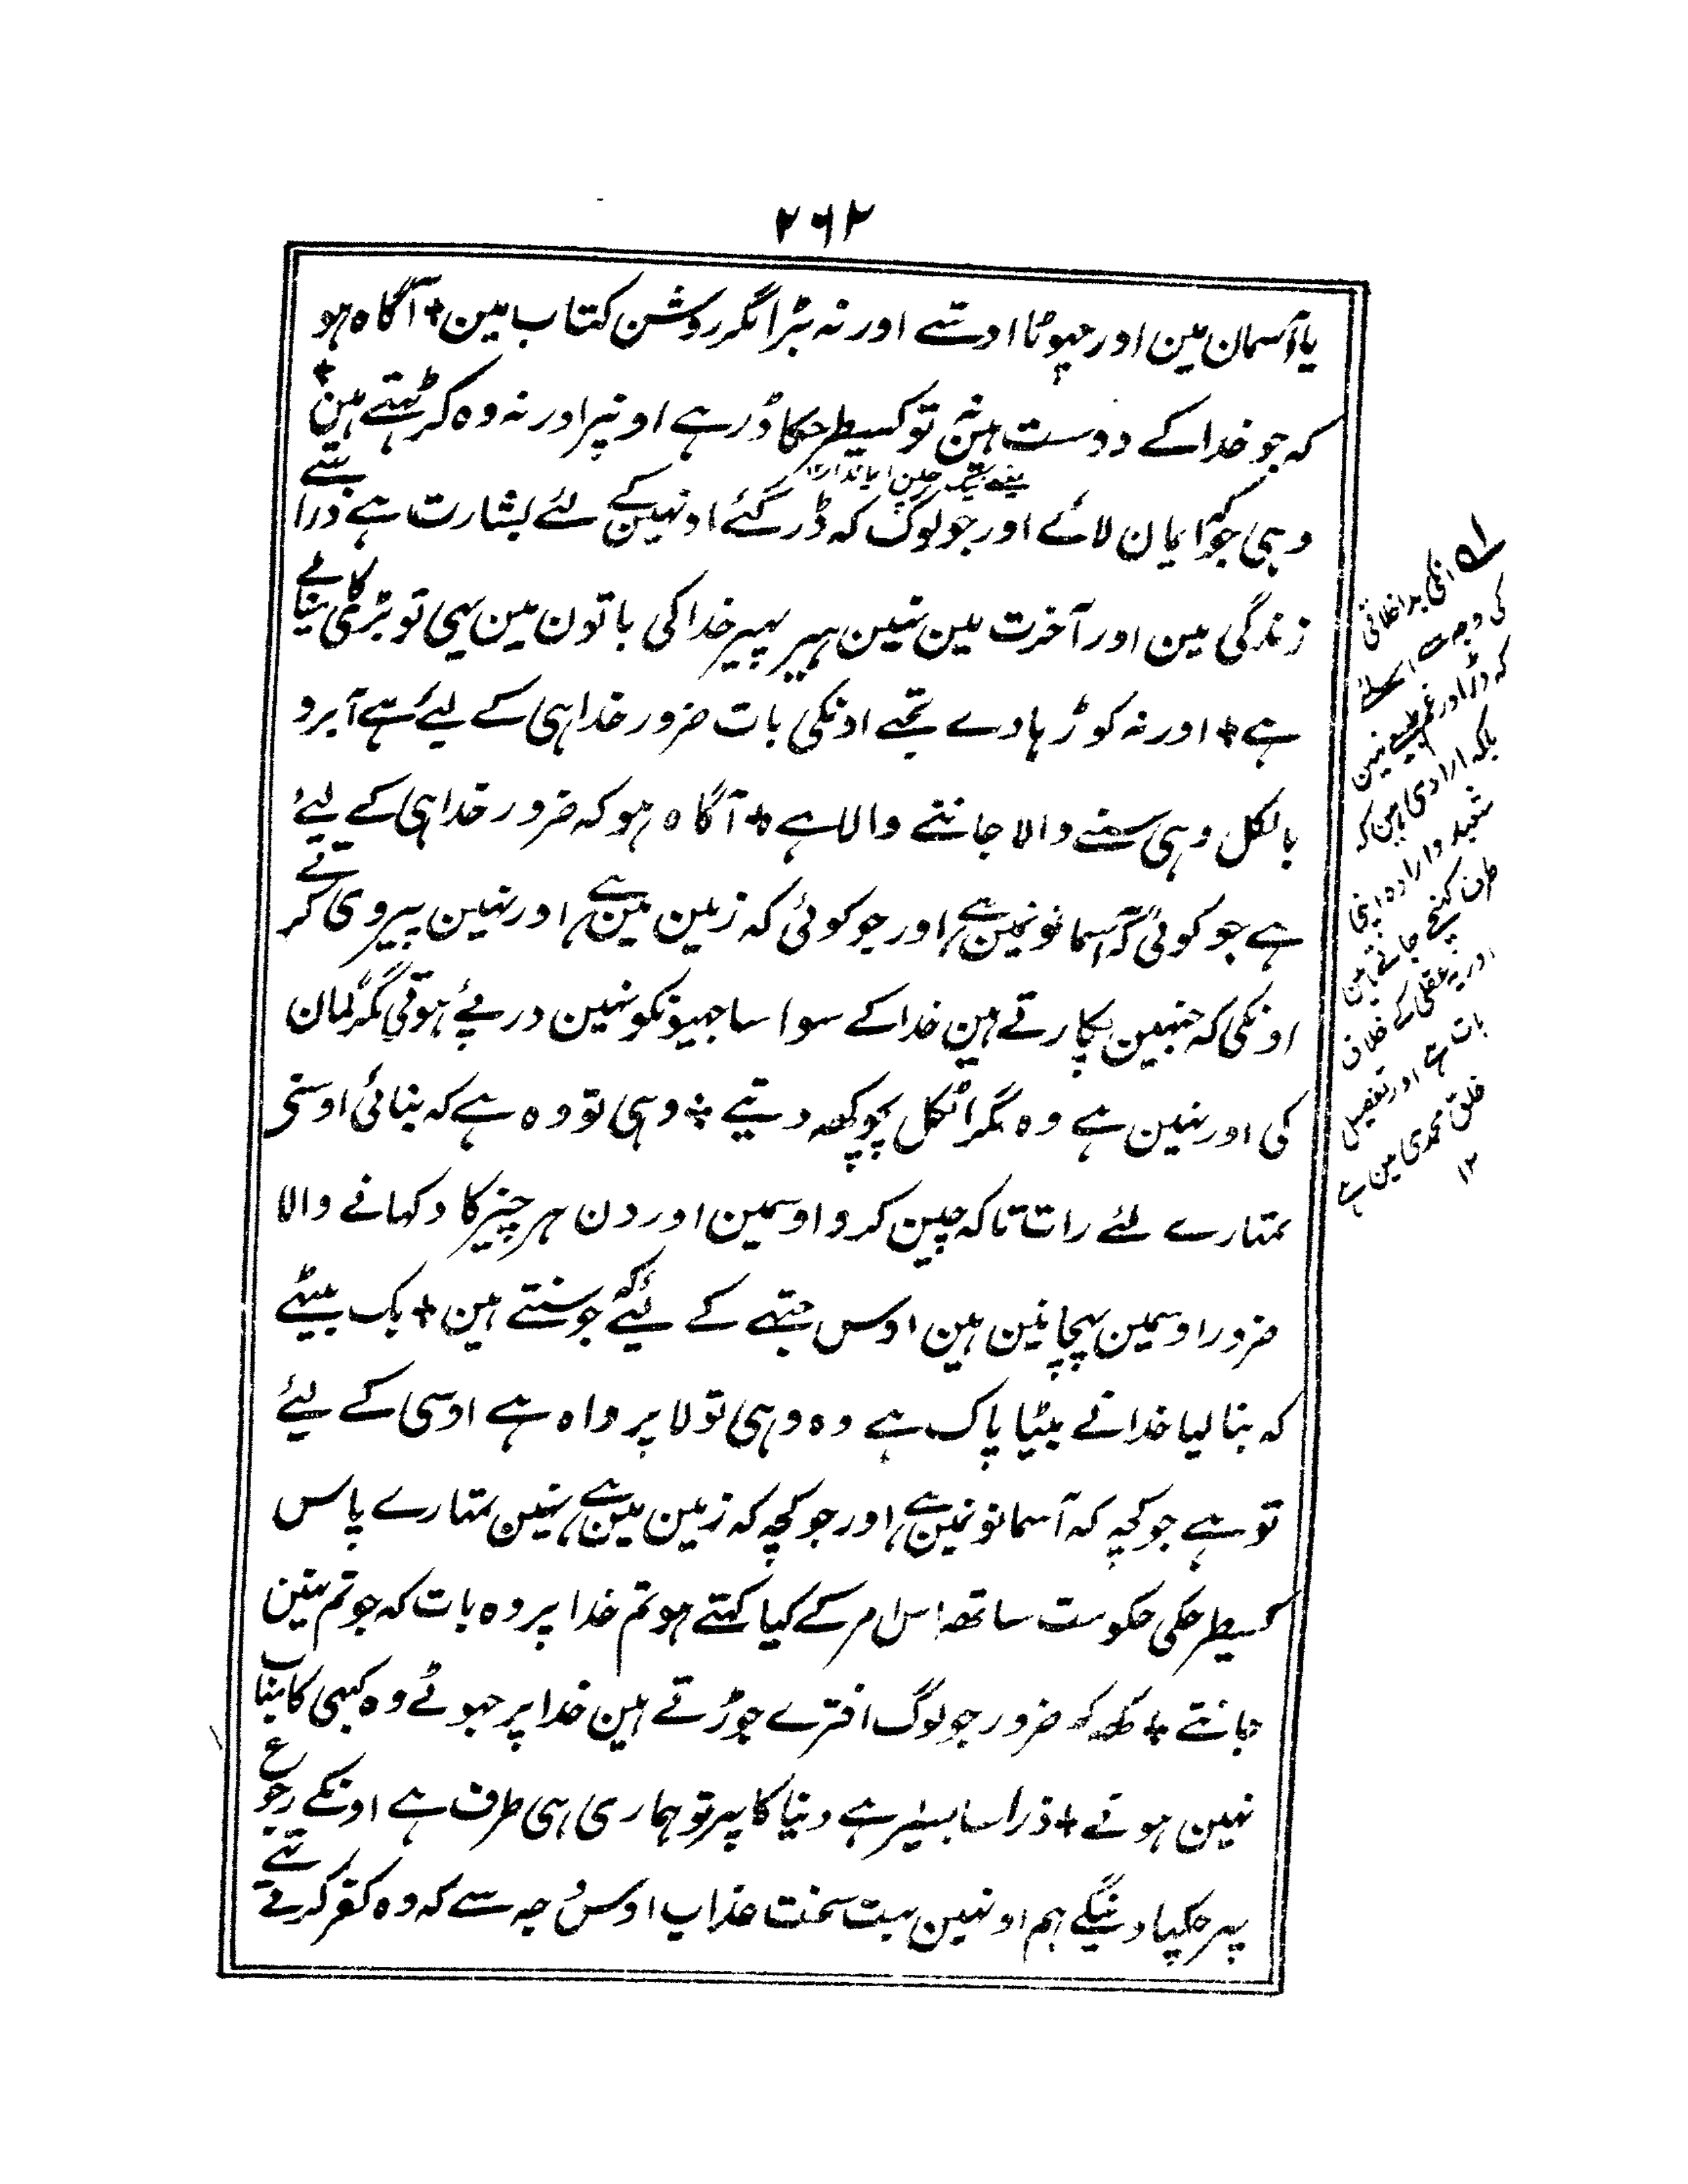 ۲۶۲
یا آسمان مین اور چہوٹا اوسے اور نہ بڑا مگر روشن کتاب مین + آگاہ ہو
کہ جو خدا کے دوست ہین نہ تو کسیطرحکا ڈر ہے اونپر اور نہ وہ کڑہتے ہین +
وہی جو کہ ایمان لائے اور جو لوگ کہ ڈر گئے اونہین کے لئے بشارت ہے ذرا سے
زندگی مین اور آخرت مین نہین ہیر پہیر خدا کی باتون مین یہی تو بڑی کامیابی
ہے + اور نہ کوڑہا دے تجہے اونکی بات ضرور خدا ہی کے لیئے ہے آبرو
بالکل وہی سننے والا جاننے والا ہے + آگاہ ہو کہ ضرور خدا ہی کے لیئے
ہے جو کوئی کہ آسمانونمین ہے اور جو کوئی کہ زمین مین ہے اور نہین پیروی کرتے
اونکی کہ جنہین پکارتے ہین خدا کے سوا ساجہیونکو نہین درپے ہوتی مگر گمان
کی اور نہین ہے وہ مگر اٹکل پچو کہہ دیتے + وہی تو وہ ہے کہ بنائی اوسنے
تمہارے لئے رات تاکہ چین کرو اوسمین اور دن ہر چیز کا دکہانے والا
ضرور اوسمین پہچانین ہین اوس جتہے کے لیئے کہ جو سنتے ہین + بک بیٹہے
کہ بنا لیا خدا نے بیٹا پاک ہے وہ وہی تو لاپرواہ ہے اوسی کے لیئے
تو ہے جو کچہ کہ آسمانونمین ہے اور جو کچہ کہ زمین مین ہے نہین تمہارے پاس
کسیطرحکی حکومت ساتھ اس امر کے کیا کہتے ہو تم خدا پر وہ بات کہ جو تم نہین
جانتے + کہہ کہ ضرور جو لوگ افترے جوڑتے ہین خدا پر جہوٹے وہ کبہی کامیاب
نہین ہوتے + ذرا سا بسیرہ ہے دنیا کا پہر تو ہماری ہی طرف ہے اونکے رجوع
پہر چکہا دینگے ہم اونہین بہت سخت عذاب اوس وجہ سے کہ وہ کفر کرتے تہے
انکی بداخلاقی
کی وجہ سے اسلئے
کہ ڈر اور غم طبعی نہین
بلکہ ارادی ہین کہ
وارادہ اپنی
طرف کہنچے جاتے ہین
اور یہ عقل کے خلاف
بات ہے اور تفصیل
خلق محمدی مین ہے
۱۲